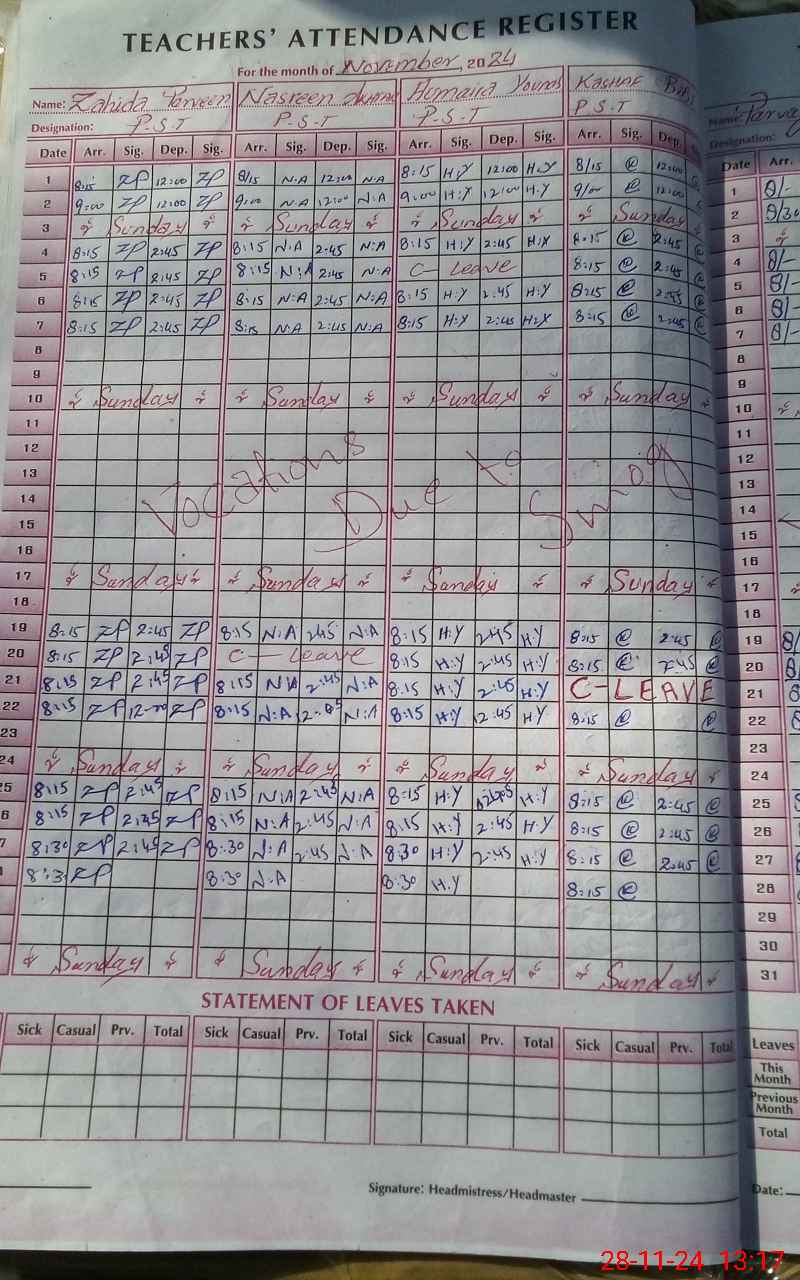 TEACHERS' ATTENDANCE REGISTER
For the month of November, 2024
Name: Zahida Parveen Nasreen Humaira Younas Kashaf Bibi Name: Parva
Designation: P.S.T P.S.T P.S.T P.S.T Designation:
Date Arr. Sig. Dep. Sig. Arr. Sig. Dep. Sig. Arr. Sig. Dep. Sig. Arr. Sig. Dep. Date Arr.
1 8:15 ZP 12:00 ZP 8/15 N.A 12:00 N.A 8:15 H.Y 12:00 H.Y 8/15 @ 12:00 1 8/-
2 9:00 ZP 12:00 ZP 9:00 N.A 12:00 N.A 9:00 H:Y 12:00 H.Y 9/00 @ 12:00 2 8/30
3 Sunday Sunday Sunday Sunday 3
4 8:15 ZP 2:45 ZP 8:15 N.A 2:45 N:A 8:15 H:Y 2:45 H:Y 8:15 @ 2:45 @ 4 8/-
5 8:15 ZP 2:45 ZP 8:15 N:A 2:45 N.A C- Leave 8:15 @ 2:45 @ 5 8/-
6 8:15 ZP 2:45 ZP 8:15 N:A 2:45 N:A 8:15 H:Y 2:45 H:Y 8:15 @ 2:45 @ 6 8/-
7 8:15 ZP 2:45 ZP 8:15 N.A 2:45 N:A 8:15 H:Y 2:45 H:Y 8:15 @ 2:45 @ 7 8/-
8 8
9 9
10 Sunday Sunday Sunday Sunday 10
11 11
12 12
13 13
Vocations Due to Smog
14 14
15 15
16 16
17 Sunday Sunday Sunday Sunday 17
18 18
19 8:15 ZP 2:45 ZP 8:15 N:A 2:45 N:A 8:15 H:Y 2:45 H:Y 8:15 @ 2:45 @ 19 8/
20 8:15 ZP 2:45 ZP C- Leave 8:15 H:Y 2:45 H:Y 8:15 @ 2:45 @ 20 8
21 8:15 ZP 2:45 ZP 8:15 N:A 2:45 N:A 8:15 H:Y 2:45 H:Y C-LEAVE 21 8
22 8:15 ZP 12-00 ZP 8:15 N:A N:A 8:15 H:Y 12:45 H:Y 8:15 @ @ 22 8
23 23
24 Sunday Sunday Sunday Sunday 24
25 8:15 ZP 2:45 ZP 8:15 N:A 2:45 N:A 8:15 H:Y H:Y 8:15 @ 2:45 @ 25 8
6 8:15 ZP 2:45 ZP 8:15 N:A 2:45 N:A 8:15 H:Y 2:45 H:Y 8:15 @ 2:45 @ 26 8
7 8:30 ZP 2:45 ZP 8:30 N:A 2:45 N:A 8:30 H:Y 2:45 H:Y 8:15 @ 2:45 @ 27 8/
8:3 ZP 8:30 N:A 8:30 H.Y 8:15 @ 28
29
30
Sunday Sunday Sunday Sunday 31
STATEMENT OF LEAVES TAKEN
Sick Casual Prv. Total Sick Casual Prv. Total Sick Casual Prv. Total Sick Casual Prv. Total Leaves
This Month
Previous Month
Total
Signature: Headmistress/Headmaster Date:
28-11-24 13:17